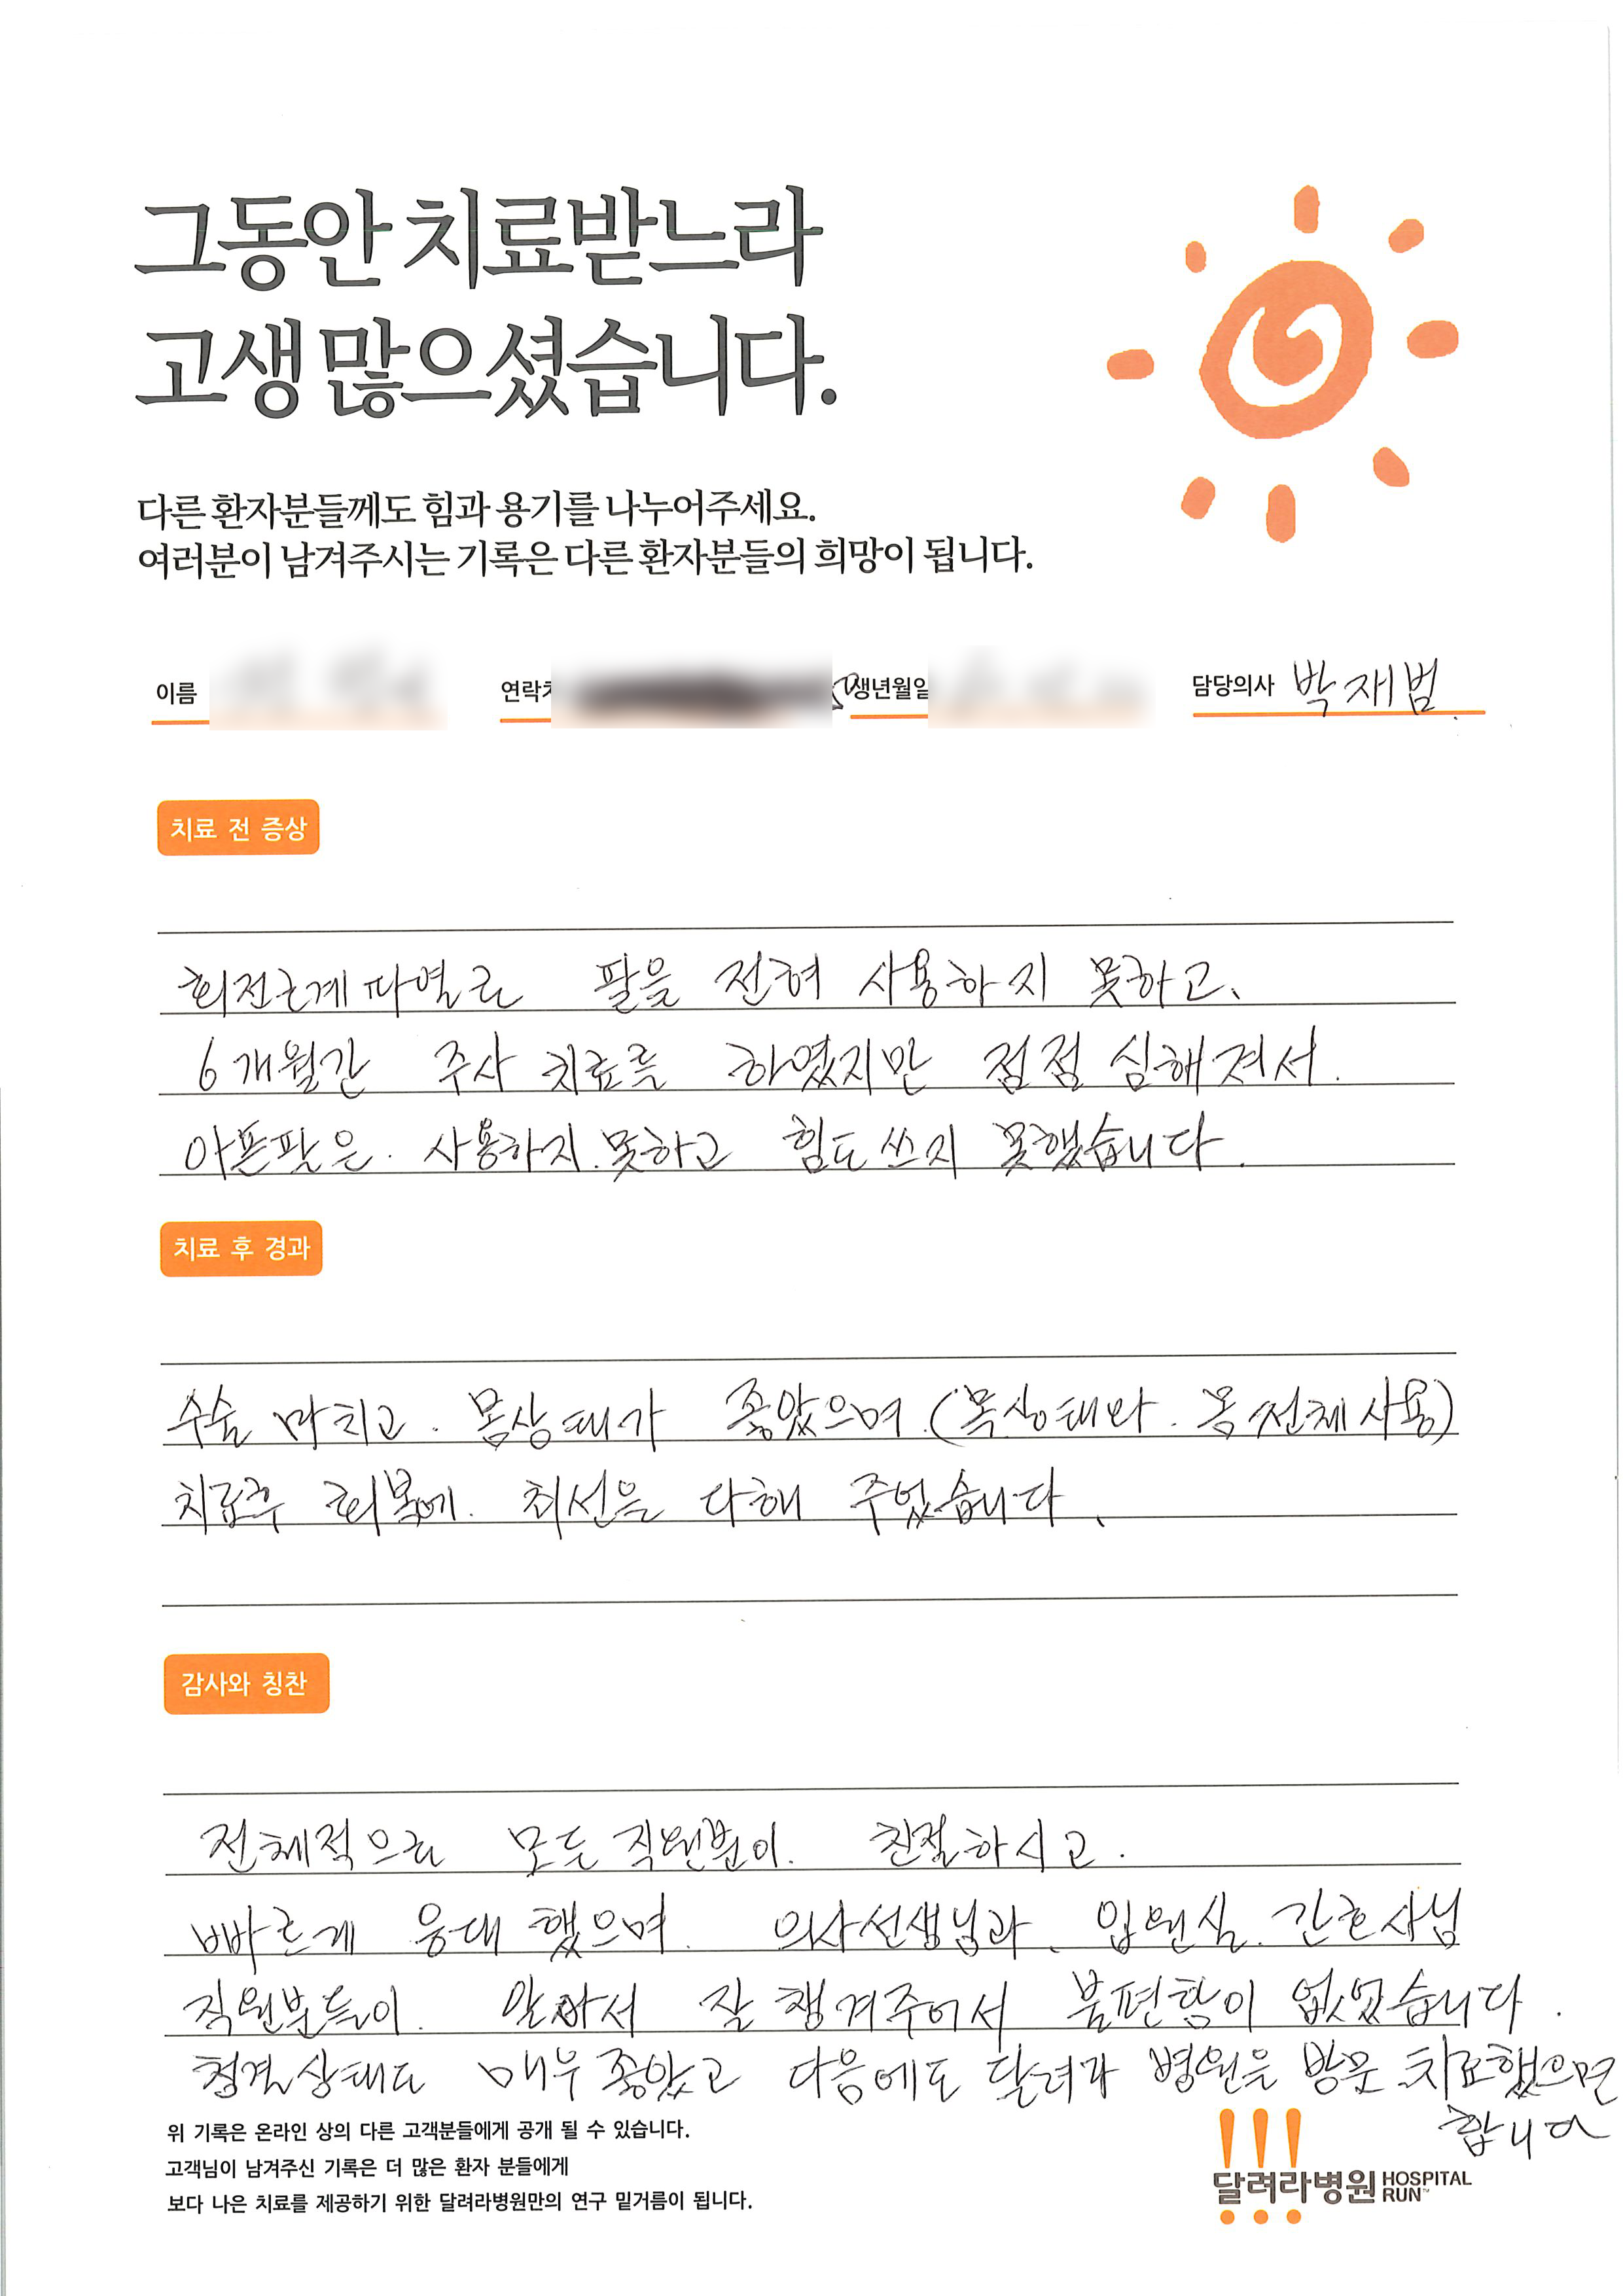 그동안 치료받느라
고생 많으셨습니다.
다른 환자분들께도 힘과 용기를 나누어주세요.
여러분이 남겨주시는 기록은 다른 환자분들의 희망이 됩니다.
이름 연락처 생년월일 담당의사 박재범.
치료 전 증상
회전근개파열로 팔을 전혀 사용하지 못하고.
6개월간 주사 치료를 하였지만 점점 심해져서.
아픈팔은. 사용하지.못하고 힘도 쓰지 못했습니다.
치료 후 경과
수술 마치고. 몸상태가 좋았으며.(목상태와. 몸전체사용)
치료후 회복에. 최선을 다해 주었습니다.
감사와 칭찬
전체적으로 모든 직원분이. 친절하시고.
빠르게 응대 했으며. 의사선생님과. 입원실. 간호사님
직원분들이. 알아서 잘 챙겨주어서 불편함이 없었습니다.
청결상태도 매우 좋았고 다음에도 달려라 병원을 방문 치료했으면
합니다
위 기록은 온라인 상의 다른 고객분들에게 공개 될 수 있습니다.
고객님이 남겨주신 기록은 더 많은 환자 분들에게
보다 나은 치료를 제공하기 위한 달려라병원만의 연구 밑거름이 됩니다.
달려라병원 HOSPITAL RUN™